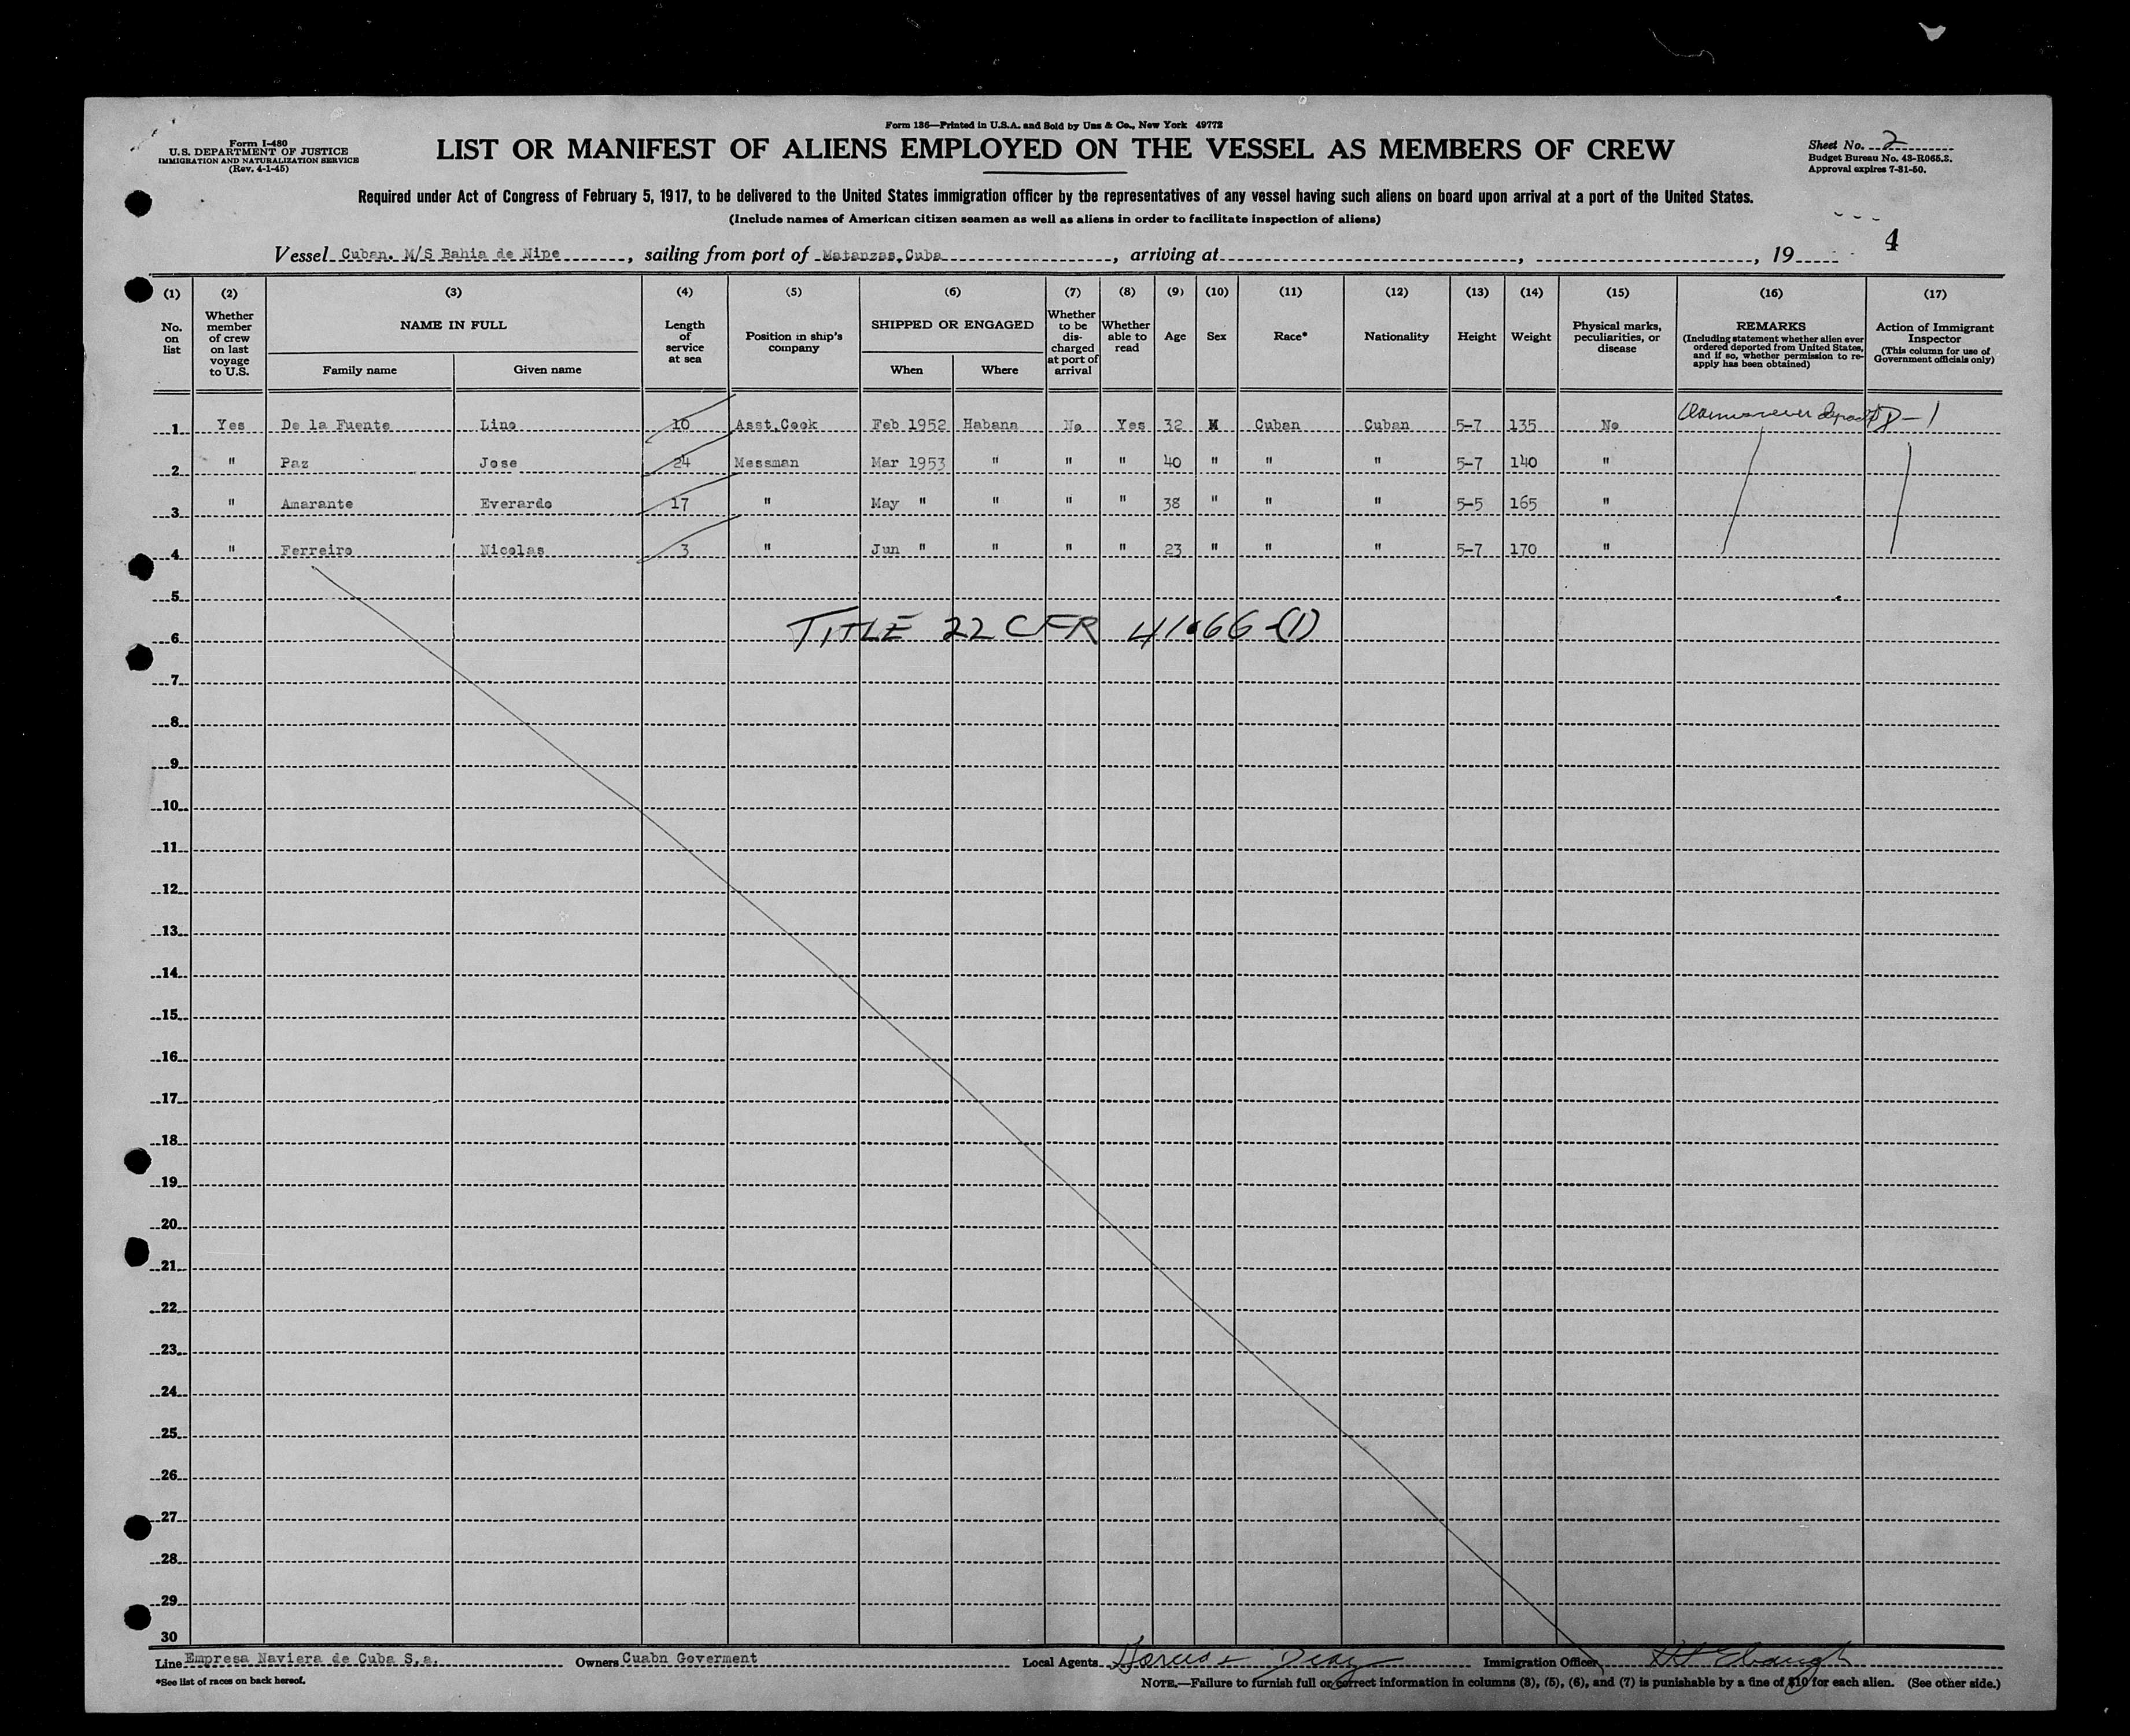 Form 136—Printed in U.S.A. and Sold by Unz & Co., New York 49772
Form I-480
U.S. DEPARTMENT OF JUSTICE
IMMIGRATION AND NATURALIZATION SERVICE
(Rev. 4-1-45)
LIST OR MANIFEST OF ALIENS EMPLOYED ON THE VESSEL AS MEMBERS OF CREW
Sheet No. 2
Budget Bureau No. 43-R065.2.
Approval expires 7-31-50.
Required under Act of Congress of February 5, 1917, to be delivered to the United States immigration officer by the representatives of any vessel having such aliens on board upon arrival at a port of the United States.
(Include names of American citizen seamen as well as aliens in order to facilitate inspection of aliens)
4
Vessel Cuban. M/S Bahia de Nipe, sailing from port of Matanzas,Cuba, arriving at , , 19
(1) (2) (3) (4) (5) (6) (7) (8) (9) (10) (11) (12) (13) (14) (15) (16) (17)
No. on list
Whether member of crew on last voyage to U.S.
NAME IN FULL
Family name Given name
Length of service at sea
Position in ship's company
SHIPPED OR ENGAGED
When Where
Whether to be discharged at port of arrival
Whether able to read
Age
Sex
Race*
Nationality
Height
Weight
Physical marks, peculiarities, or disease
REMARKS
(Including statement whether alien ever ordered deported from United States, and if so, whether permission to reapply has been obtained)
Action of Immigrant Inspector
(This column for use of Government officials only)
1 Yes De la Fuente Lino 10 Asst.Cook Feb 1952 Habana No Yes 32 M Cuban Cuban 5-7 135 No
2 " Paz Jose 24 Messman Mar 1953 " " " 40 " " " 5-7 140 "
3 " Amarante Everardo 17 " May " " " " 38 " " " 5-5 165 "
4 " Ferreiro Nicolas 3 " Jun " " " " 23 " " " 5-7 170 "
5
TITLE 22 CFR 41.66-(1)
6
7
8
9
10
11
12
13
14
15
16
17
18
19
20
21
22
23
24
25
26
27
28
29
30
Line Empresa Naviera de Cuba S.a. Owners Cuabn Goverment Local Agents Immigration Officer
*See list of races on back hereof.
NOTE.—Failure to furnish full or correct information in columns (3), (5), (6), and (7) is punishable by a fine of $10 for each alien. (See other side.)